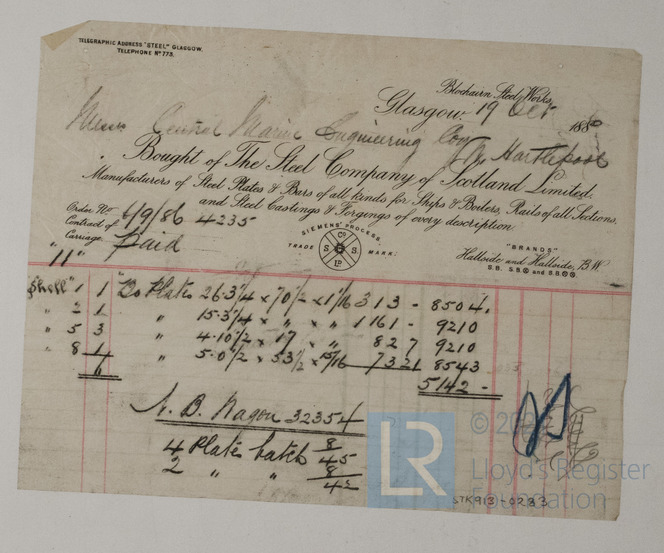 TELEGRAPHIC ADDRESS "STEEL" GLASGOW.
TELEPHONE Nº 773.
Blochairn Steel Works,
Glasgow, 19 Oct 1886
Messrs Central Marine Engineering Coy W. Hartlepool
Bought of The Steel Company of Scotland Limited,
Manufacturers of Steel Plates & Bars of all kinds for Ships & Boilers, Rails of all Sections,
and Steel Castings & Forgings of every description.
Order No
Contract of 6/9/86 4235
Carriage Paid
SIEMENS' PROCESS.
TRADE MARK.
Co S S LD
"BRANDS"
Hallside and Hallside, B.W.
S.B. S.B. and S.B.
" 11 "
Shell" 1 1 Bo Plates 26.3¼ x 70½ x 1 1/16 313 - 8504.
" 2 1 " 15.3¼ x " x " 1161 - 9210
" 5 3 " 4.10½ x 17 x " 827 9210
" 8 1 " 5.0½ x 53½ x 15/16 7321 8543
6 5142 -
N. B. Wagon 32354
4 Plates batch 8/45
2 " " 8/42
© 20
LR
Lloyd's Register
Foundation
STK913-0283